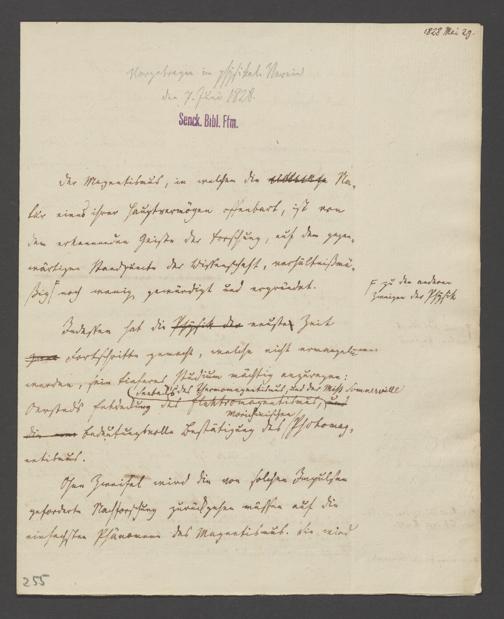 1828 Mai 29.
Vorgetragen im physikal. Verein
den 7. Juni 1828.
Senck. Bibl. Ffm.
Der Magnetismus, in welchem die Na-
tur eines ihrer Hauptvermögen offenbart, ist von
dem erkennenden Geiste der Forschung, auf dem gegen-
wärtigen Standpunkte der Wissenschaft, verhältnißmä-
ßig noch wenig gewürdigt und ergründet.
zu den anderen
Zweigen der Physik
Indessen hat die Physik der neusten Zeit
Fortschritte gemacht, welche nicht ermangeln
werden, sein tieferes Studium mächtig anzuregen:
Seebecks des Thermomagnetismus, und der Miss Sommerville
Oersteds Entdeckung des Elektromagnetismus, und
Morichinischen
die bedeutungsvolle Bestätigung des Photomag-
netismus.
Ohne Zweifel wird die von solchen Impulsen
geforderte Nachforschung zurückgehen müssen auf die
einfachsten Phänomene des Magnetismus. Sie wird
255